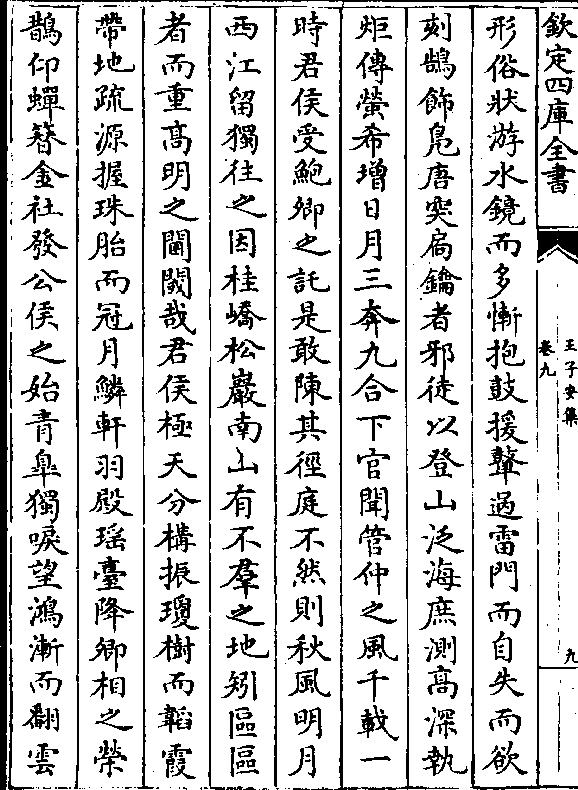 欽定四庫全書
王子安集
卷九
九
形俗狀游水鏡而多慚抱鼓援聲過雷門而自失而欲
刻鵠飾鳬唐突扃鑰者邪徒以登山泛海庶測髙深執
炬傳螢希增日月三奔九合下官聞管仲之風千載一
時君侯受鮑卿之託是敢陳其徑庭不然則秋風明月
西江留獨往之因桂嶠松巖南山有不羣之地矧區區
者而重髙明之闉闍哉君侯極天分構振瓊樹而韜霞
帶地疏源握珠胎而冠月鱗軒羽殿瑶臺降卿相之榮
鵲仰蟬簪金社發公侯之始青臯獨唳望鴻漸而翻雲